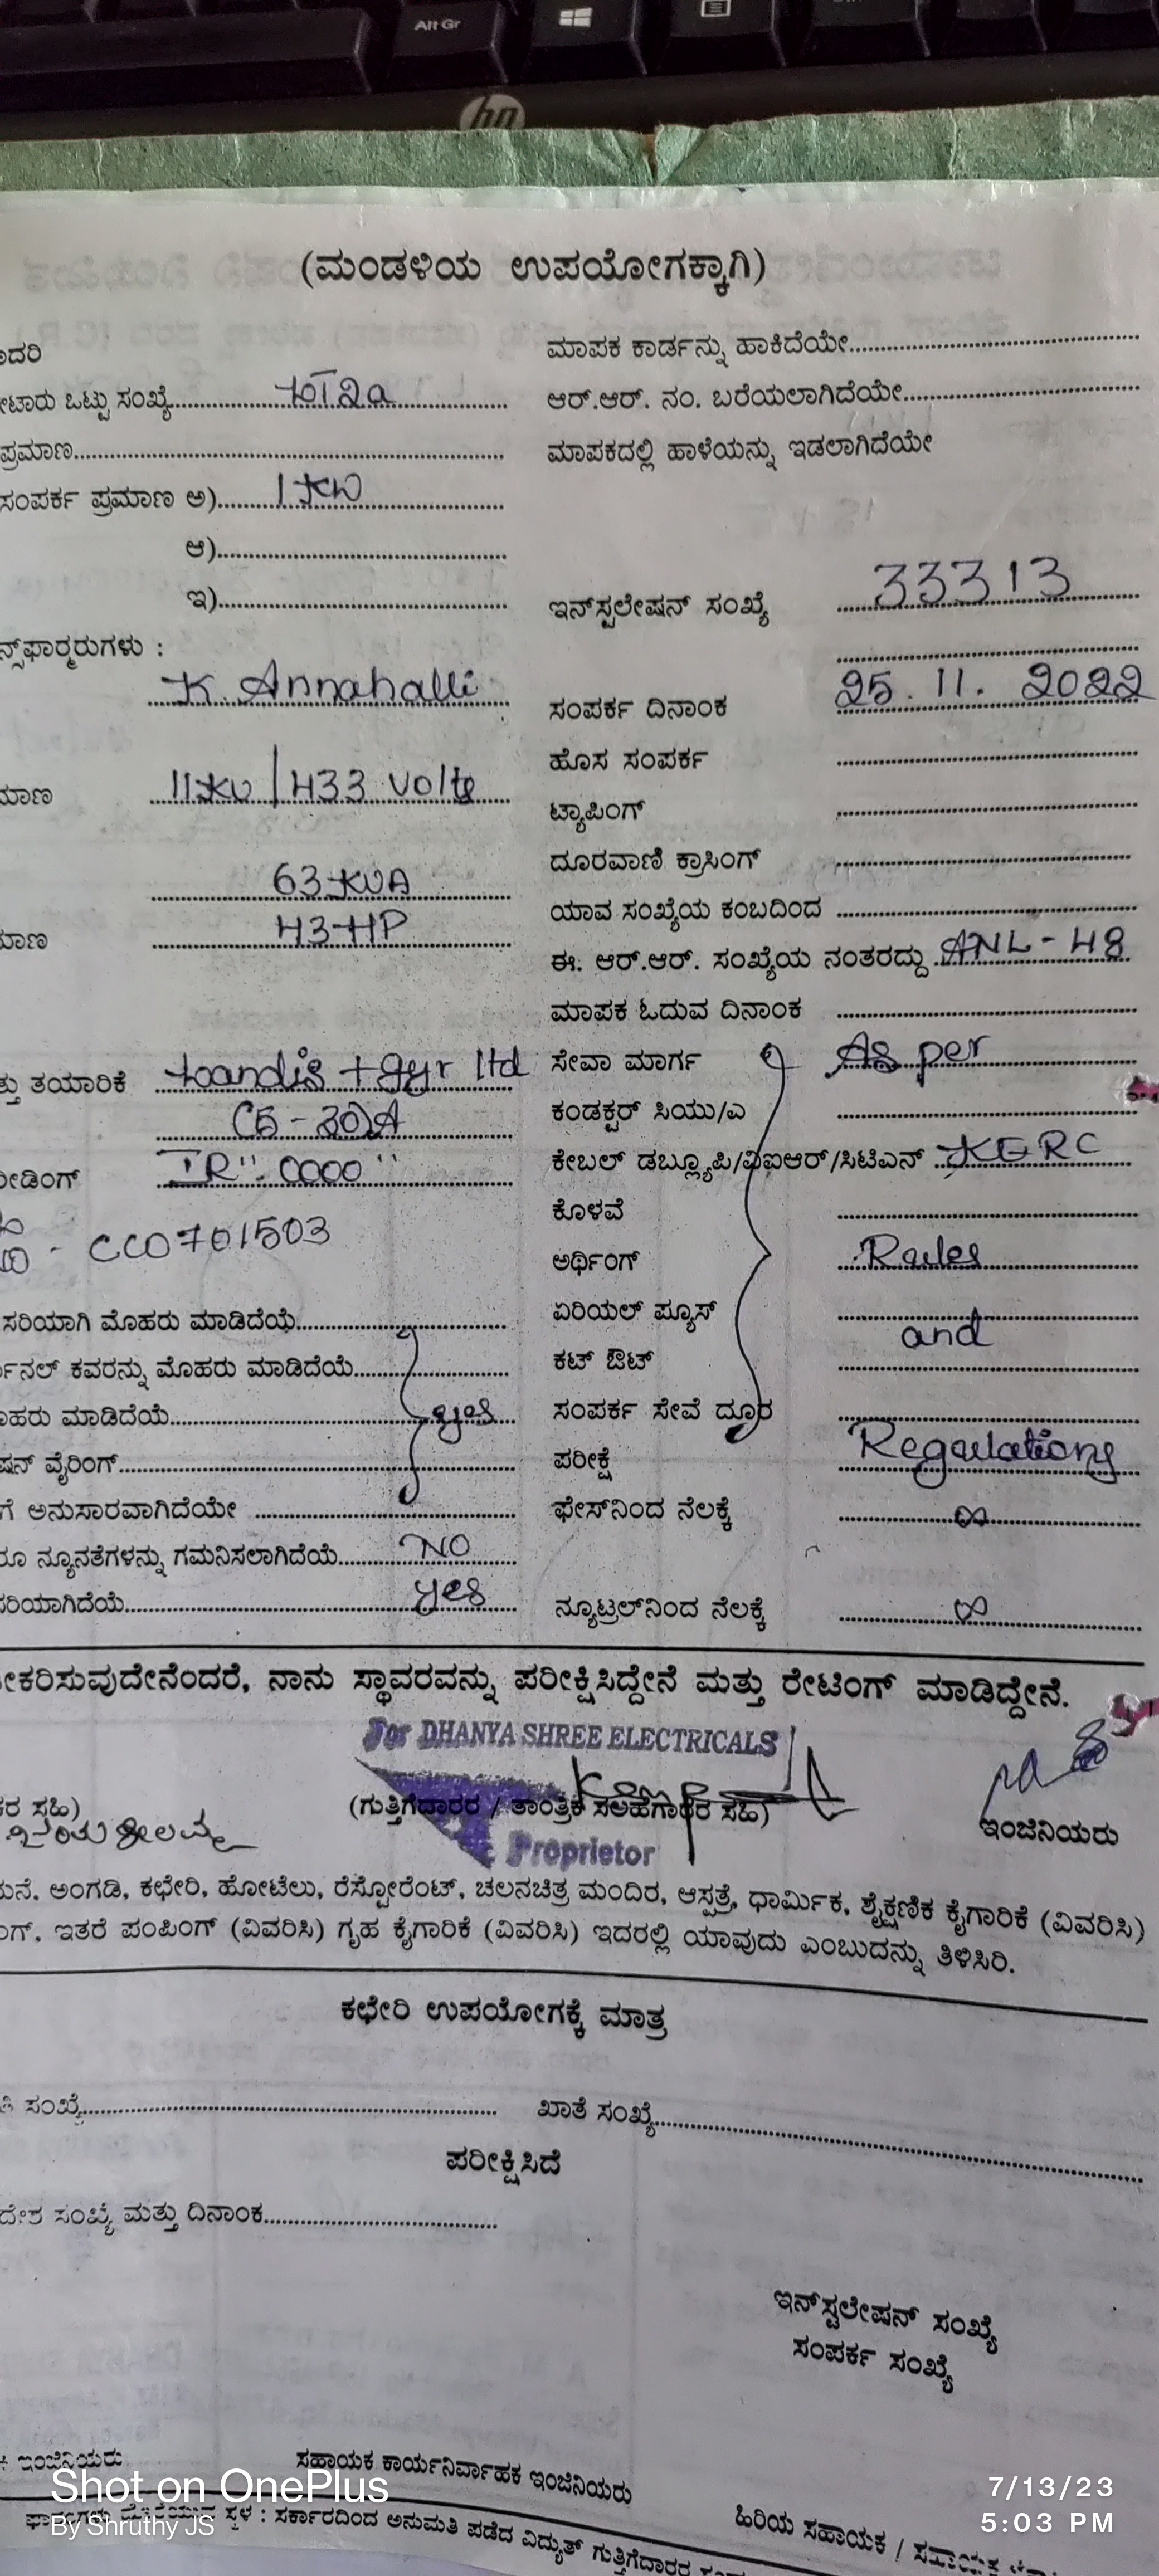 Alt Gr
hp
(ಮಂಡಳಿಯ ಉಪಯೋಗಕ್ಕಾಗಿ)
ಮಾಪಕ ಕಾರ್ಡನ್ನು ಹಾಕಿದೆಯೇ
ಒಟ್ಟು ಸಂಖ್ಯೆ
ಆರ್.ಆರ್. ನಂ. ಬರೆಯಲಾಗಿದೆಯೇ
ಪ್ರಮಾಣ
ಮಾಪಕದಲ್ಲಿ ಹಾಳೆಯನ್ನು ಇಡಲಾಗಿದೆಯೇ
ಸಂಪರ್ಕ ಪ್ರಮಾಣ ಅ) 1KW
ಆ)
ಇ)
ಇನ್‌ಸ್ಟಲೇಷನ್ ಸಂಖ್ಯೆ 33313
K. Annahalli
ಸಂಪರ್ಕ ದಿನಾಂಕ 25.11.2022
ಹೊಸ ಸಂಪರ್ಕ
11KV/433 Volts
ಟ್ಯಾಪಿಂಗ್
ದೂರವಾಣಿ ಕ್ರಾಸಿಂಗ್
63KVA
ಯಾವ ಸಂಖ್ಯೆಯ ಕಂಬದಿಂದ
43HP
ಈ. ಆರ್.ಆರ್. ಸಂಖ್ಯೆಯ ನಂತರದ್ದು ANL-48
ಮಾಪಕ ಓದುವ ದಿನಾಂಕ
ತಯಾರಿಕೆ Landis + Gyr ltd
ಸೇವಾ ಮಾರ್ಗ As per
(5-30)A
ಕಂಡಕ್ಟರ್ ಸಿಯು/ಎ
IR "0000"
ಕೇಬಲ್ ಡಬ್ಲ್ಯೂಪಿ/ವಿಐಆರ್/ಸಿಟಿಎನ್ KERC
ಕೊಳವೆ
CC0701503
ಅರ್ಥಿಂಗ್ Rules
ಸರಿಯಾಗಿ ಮೊಹರು ಮಾಡಿದೆಯೆ
ಏರಿಯಲ್ ಪ್ಯೂಸ್
and
ಕವರನ್ನು ಮೊಹರು ಮಾಡಿದೆಯೆ
ಕಟ್ ಔಟ್
ಮಾಡಿದೆಯೆ yes
ಸಂಪರ್ಕ ಸೇವೆ ದೂರ
ವೈರಿಂಗ್
ಪರೀಕ್ಷೆ Regulations
ಅನುಸಾರವಾಗಿದೆಯೇ
ಫೇಸ್‌ನಿಂದ ನೆಲಕ್ಕೆ ∞
ನ್ಯೂನತೆಗಳನ್ನು ಗಮನಿಸಲಾಗಿದೆಯೆ NO
yes
ನ್ಯೂಟ್ರಲ್‌ನಿಂದ ನೆಲಕ್ಕೆ ∞
ನಾನು ಸ್ಥಾವರವನ್ನು ಪರೀಕ್ಷಿಸಿದ್ದೇನೆ ಮತ್ತು ರೇಟಿಂಗ್ ಮಾಡಿದ್ದೇನೆ.
For DHANYA SHREE ELECTRICALS
ಸಹಿ)
(ಗುತ್ತಿಗೆದಾರರ / ತಾಂತ್ರಿಕ ಸಲಹೆಗಾರರ ಸಹಿ)
ಇಂಜಿನಿಯರು
Proprietor
ಅಂಗಡಿ, ಕಛೇರಿ, ಹೋಟೆಲು, ರೆಸ್ಟೋರೆಂಟ್, ಚಲನಚಿತ್ರ ಮಂದಿರ, ಆಸ್ಪತ್ರೆ, ಧಾರ್ಮಿಕ, ಶೈಕ್ಷಣಿಕ ಕೈಗಾರಿಕೆ (ವಿವರಿಸಿ)
ಇತರೆ ಪಂಪಿಂಗ್ (ವಿವರಿಸಿ) ಗೃಹ ಕೈಗಾರಿಕೆ (ವಿವರಿಸಿ) ಇದರಲ್ಲಿ ಯಾವುದು ಎಂಬುದನ್ನು ತಿಳಿಸಿರಿ.
ಕಛೇರಿ ಉಪಯೋಗಕ್ಕೆ ಮಾತ್ರ
ಸಂಖ್ಯೆ
ಖಾತೆ ಸಂಖ್ಯೆ
ಪರೀಕ್ಷಿಸಿದೆ
ಸಂಖ್ಯೆ ಮತ್ತು ದಿನಾಂಕ
ಇನ್‌ಸ್ಟಲೇಷನ್ ಸಂಖ್ಯೆ
ಸಂಪರ್ಕ ಸಂಖ್ಯೆ
ಇಂಜಿನಿಯರು
ಸಹಾಯಕ ಕಾರ್ಯನಿರ್ವಾಹಕ ಇಂಜಿನಿಯರು
ಹಿರಿಯ ಸಹಾಯಕ /
ಸ್ಥಳ : ಸರ್ಕಾರದಿಂದ ಅನುಮತಿ ಪಡೆದ ವಿದ್ಯುತ್ ಗುತ್ತಿಗೆದಾರರ
Shot on OnePlus
By Shruthy JS
7/13/23
5:03 PM